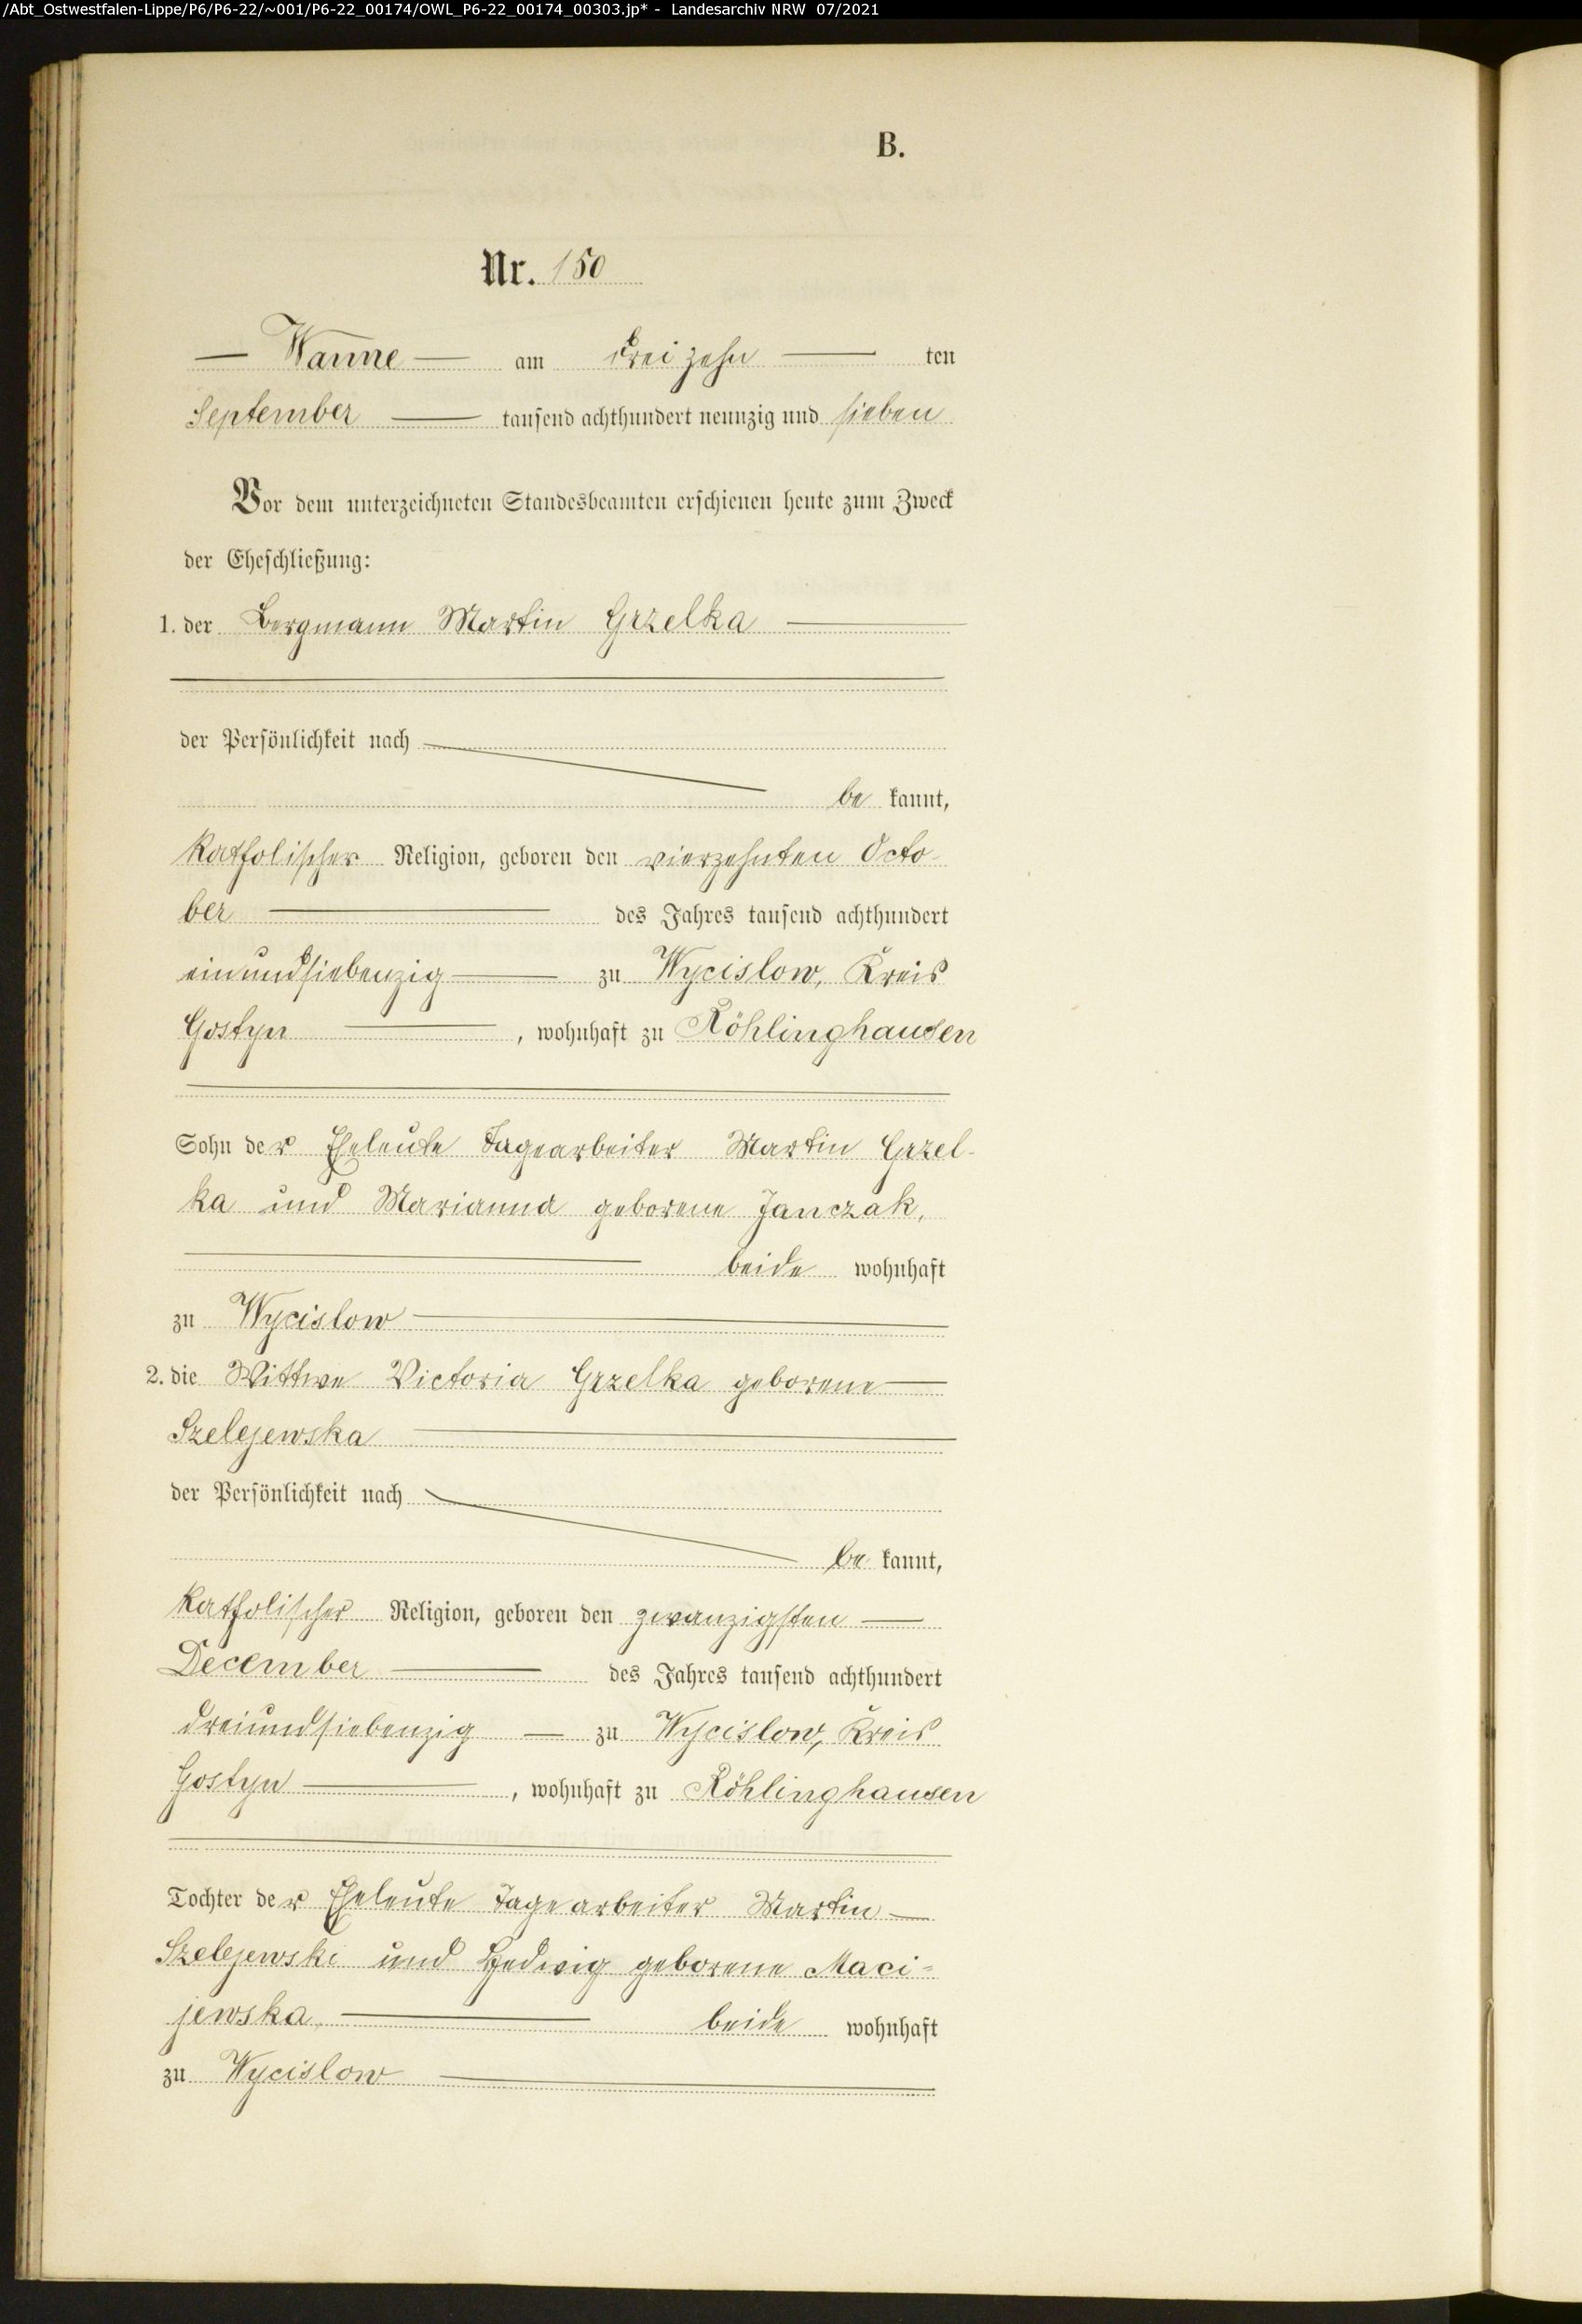 /Abt_Ostwestfalen-Lippe/P6/P6-22/~001/P6-22_00174/OWL_P6-22_00174_00303.jp* - Landesarchiv NRW 07/2021
B.
Nr. 150
Wanne am dreizehn ten
September tausend achthundert neunzig und sieben
Vor dem unterzeichneten Standesbeamten erschienen heute zum Zweck
der Eheschließung:
1. der Bergmann Martin Grzelka
der Persönlichkeit nach
be kannt,
katholischer Religion, geboren den vierzehnten Octo-
ber des Jahres tausend achthundert
einundsiebenzig zu Wycislow, Kreis
Gostyn, wohnhaft zu Röhlinghausen
Sohn der Eheleute Tagearbeiter Martin Grzel-
ka und Marianna geborene Janczak,
beide wohnhaft
zu Wycislow
2. die Wittwe Victoria Grzelka geborene
Szelejewska
der Persönlichkeit nach
be kannt,
katholischer Religion, geboren den zwanzigsten
December des Jahres tausend achthundert
dreiundsiebenzig zu Wycislow, Kreis
Gostyn, wohnhaft zu Röhlinghausen
Tochter der Eheleute Tagearbeiter Martin
Szelejewski und Hedwig geborene Maci-
jewska, beide wohnhaft
zu Wycislow